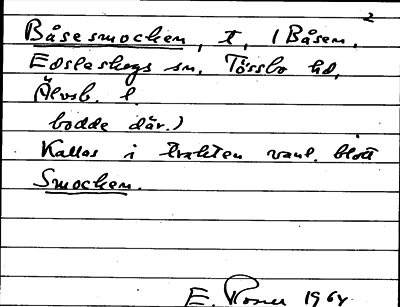 2
Båsesmocken, t, (Båsen.
Edsleskogs sn. Tössbo hd,
Älvsb. l.
bodde där.)
Kallas i trakten vanl. blott
Smocken.
E. 1964